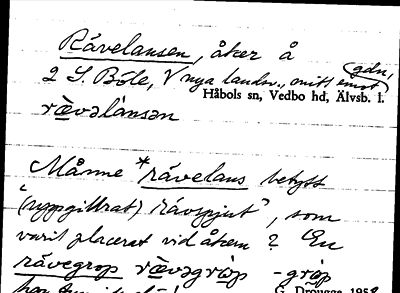 Rävelansen, åker å
2 S. Böle, V nya landsv., mitt emot gdn,
Håbols sn, Vedbo hd, Älvsb. l.
rä̀vəlánsən
Månne *rävelans betytt
"(uppgillrat) rävspjut", som
varit placerat vid åkern? En
rävegrop rä̀vəgròp -gròp
har
G. Drougge 1958